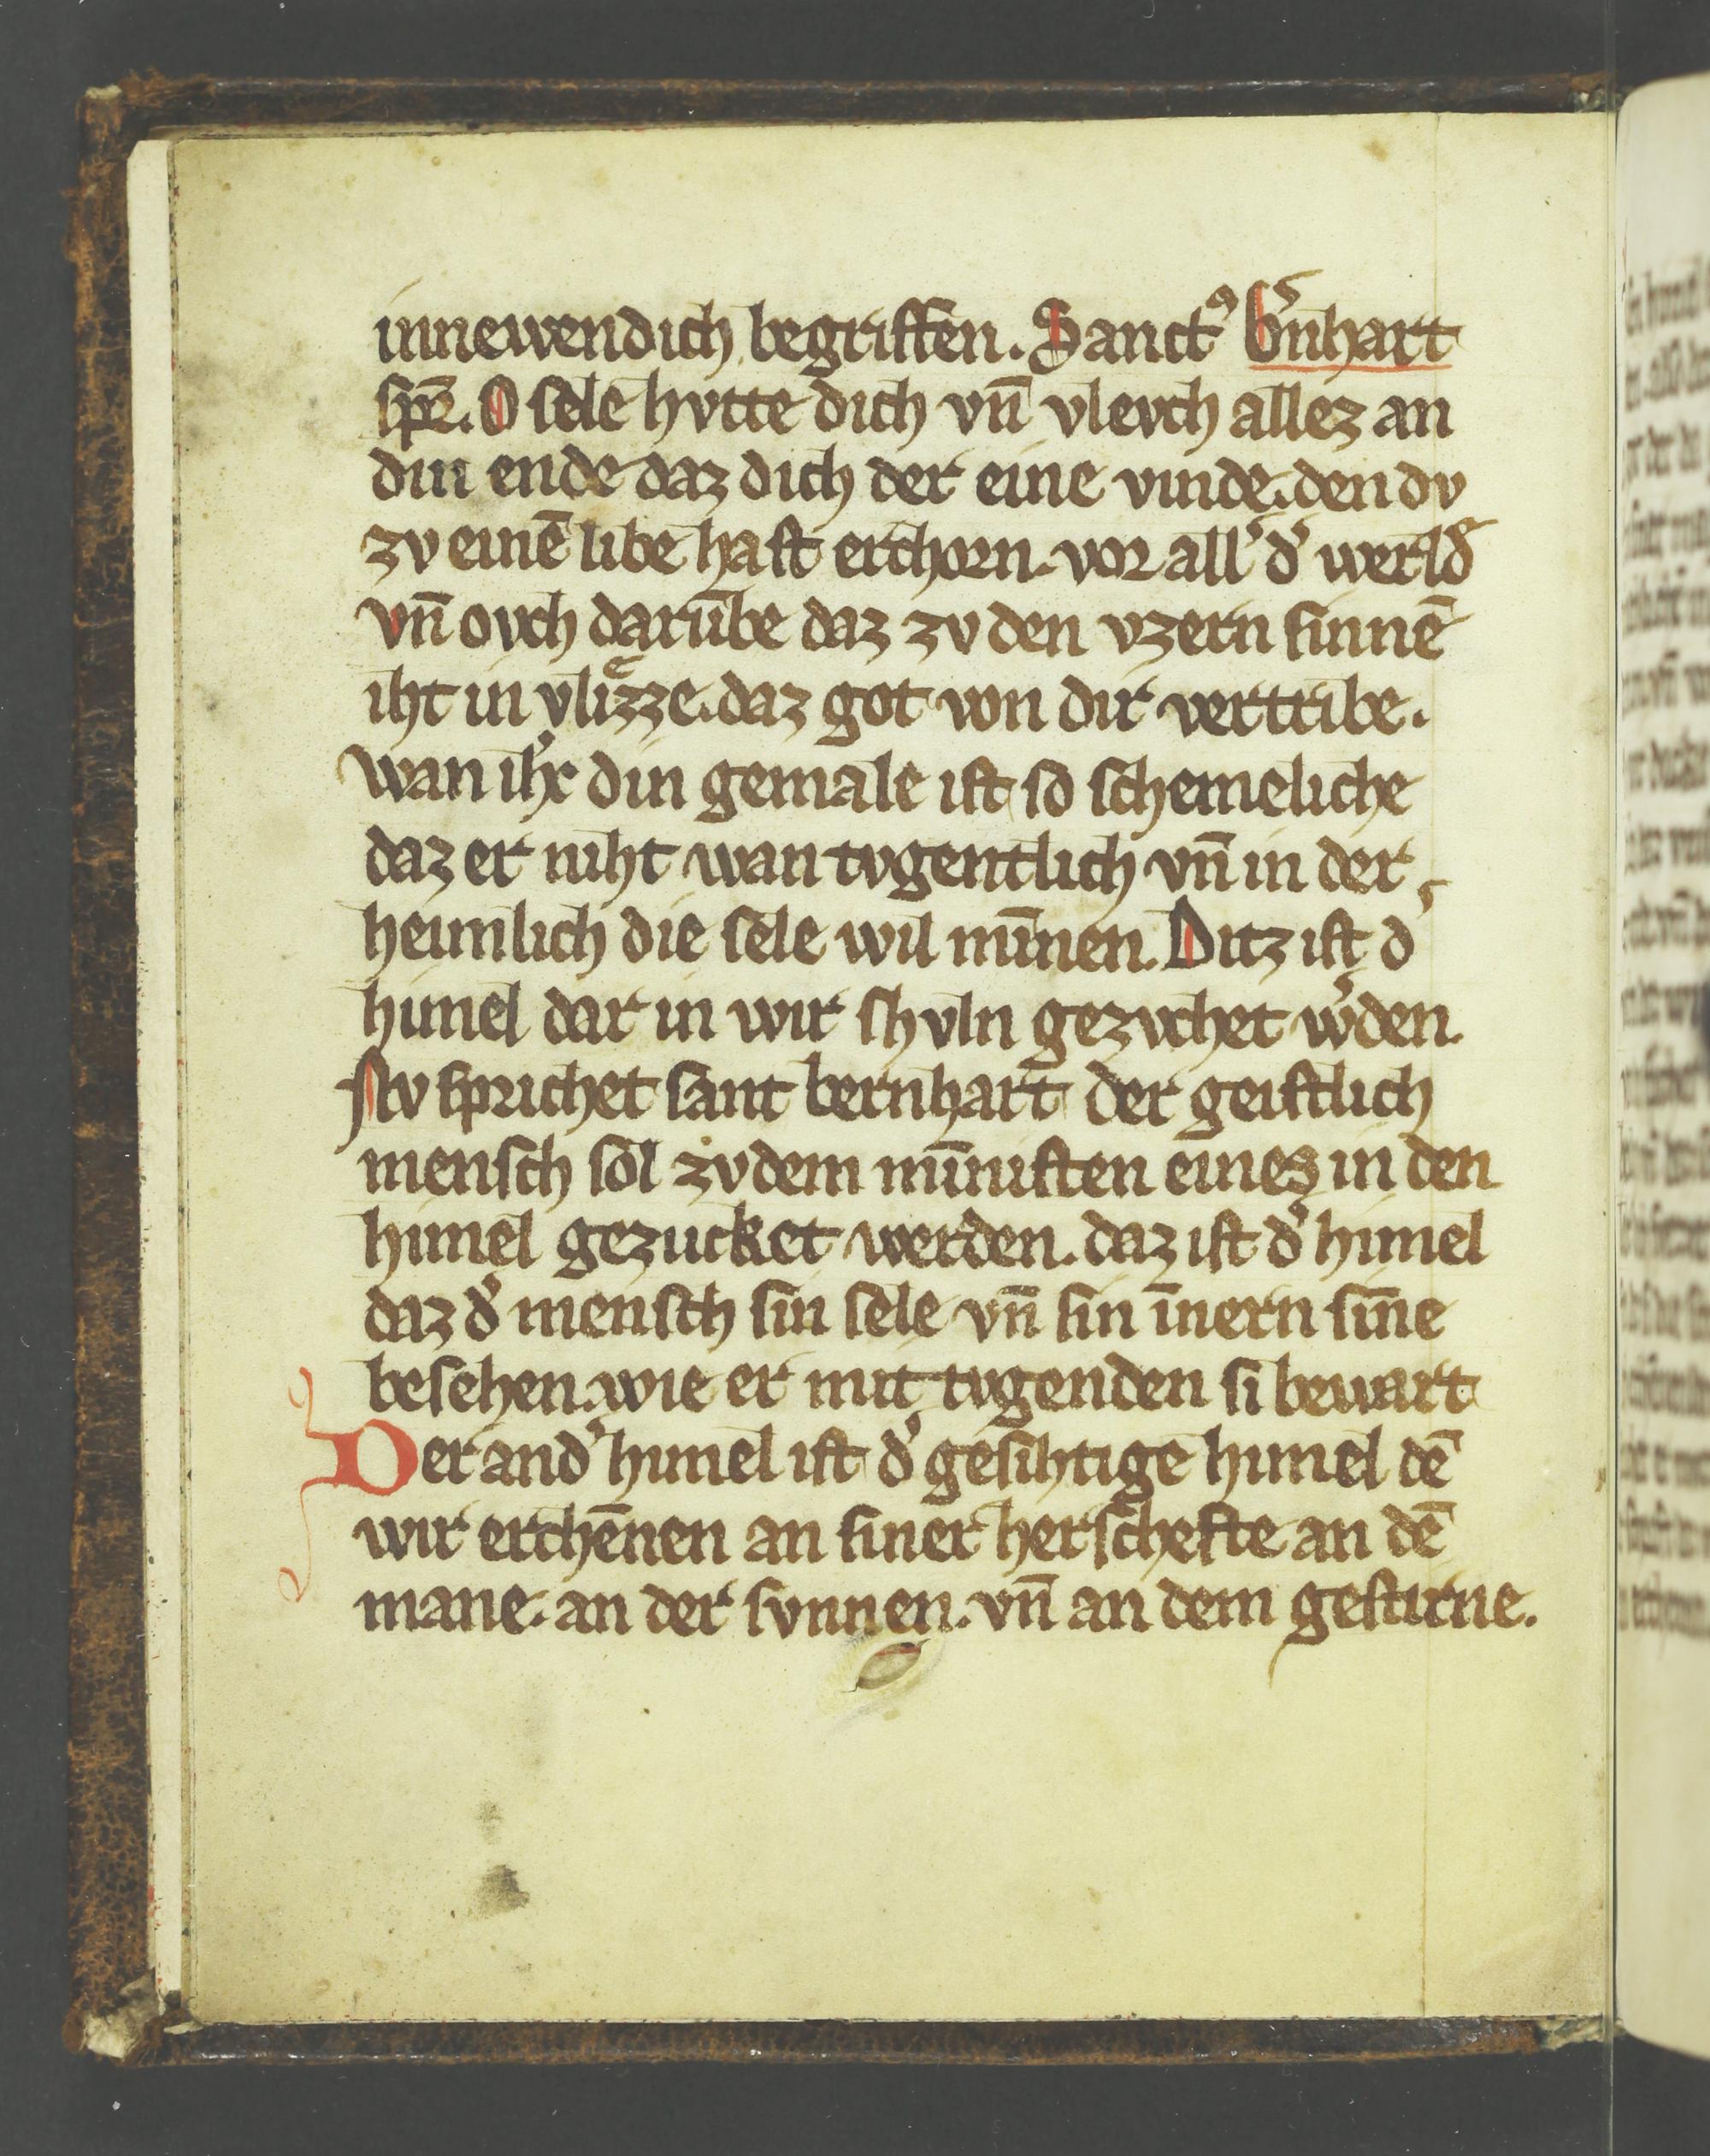 innewendich begriffen. Sanctꝰ b̾nhart
spꝛ̄. O sele hvtte dich vn̄ vlevch allez an
din ende daz dich der eine vinde. den dv
zv einē libe hast erchorn. vor all̾ d̾ werld̾
vn̄ ovch darūbe daz zv den vzern sinnē
iht in vlizͤze. daz got von dir vertribe.
wan ih̾c din gemale ist so schemeliche
daz er niht wan tvgentlich vn̄ in der
heimlich die sele wil mīnen. Ditz ist d̾
himel dar in wir shvln gezvchet w̾den.
Nv sprichet sant bernhart der geistlich
mensch sol zv dem mīnisten eines in den
himel gezucket werden. daz ist d̾ himel
daz d̾ mensch sin sele vn̄ sin īnern sīne
besehen. wie er mit tvgenden si bewart
Der and̾ himel ist d̾ gesihtige himel dē
wir erchēnen an siner herschefte an dē
mane. an der svnnen. vn̄ an dem gestirne.